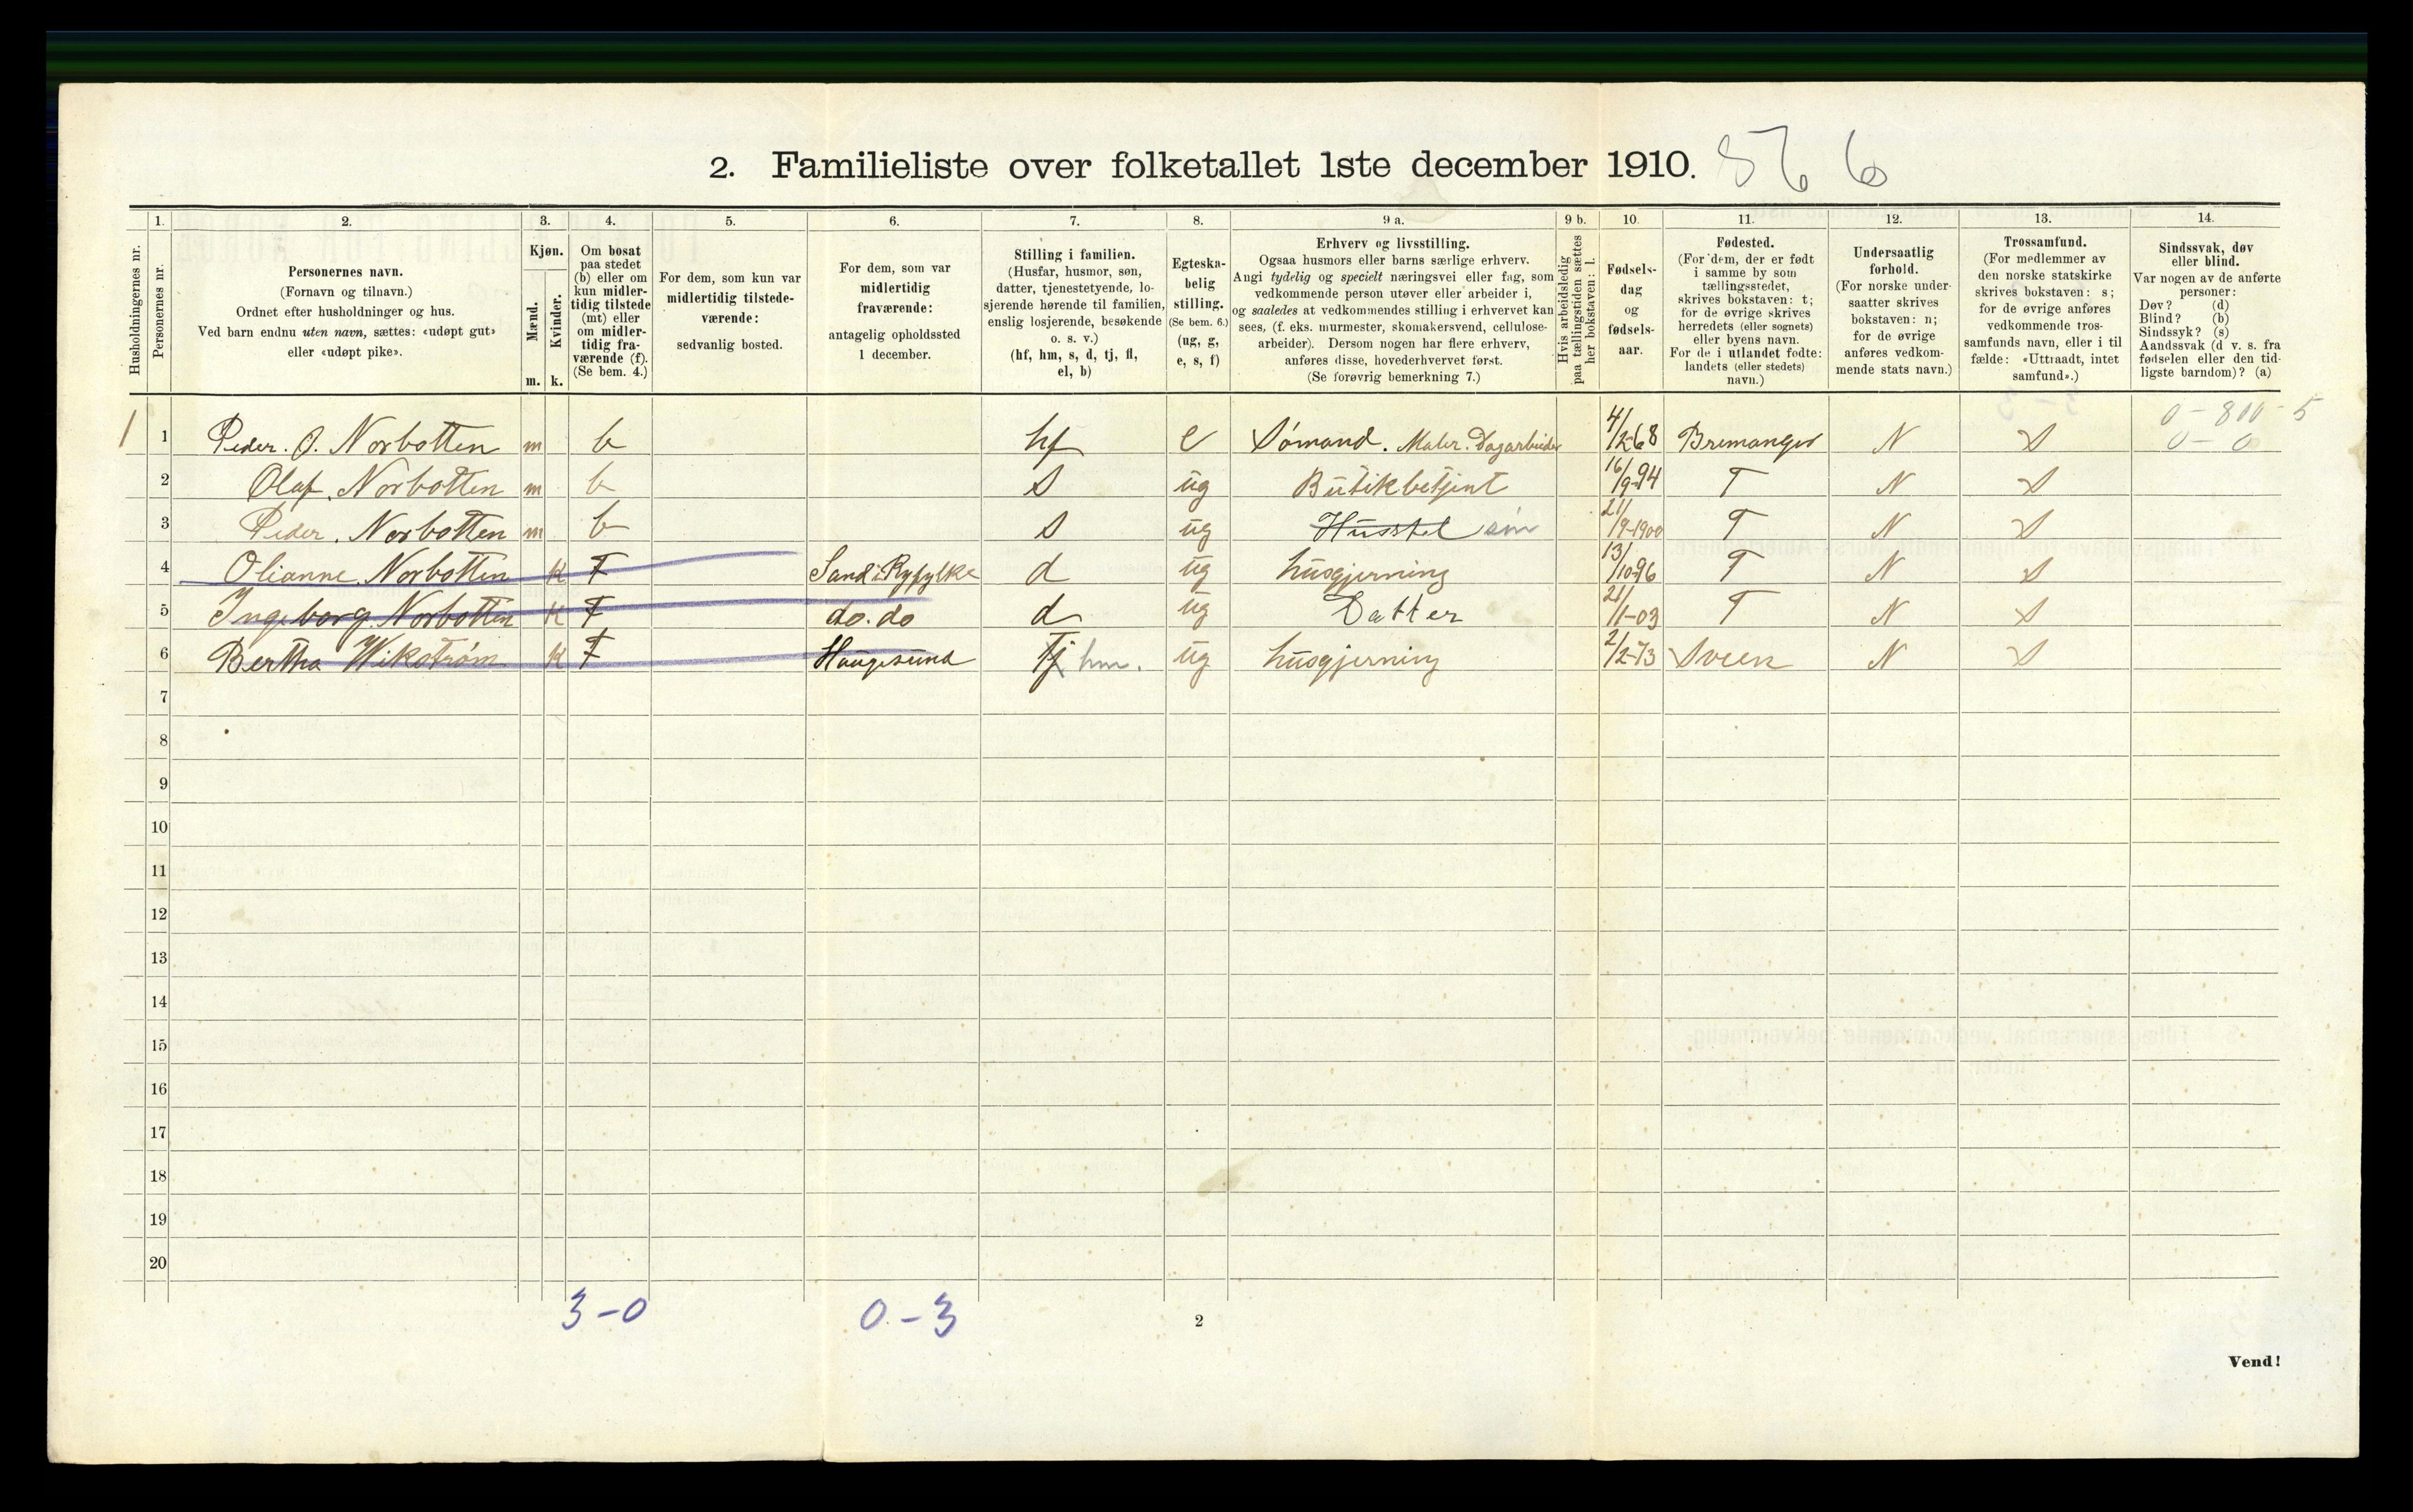 2. Familieliste over folketallet 1ste december 1910. 876
1. 2. 3. 4. 5. 6. 7. 8. 9 a. 9 b. 10. 11. 12. 13. 14.
Husholdningernes nr.
Personernes nr.
Personernes navn.
(Fornavn og tilnavn.)
Ordnet efter husholdninger og hus.
Ved barn endnu uten navn, sættes: «udøpt gut»
eller «udøpt pike».
Kjøn.
Mænd.
Kvinder.
m. k.
Om bosat
paa stedet
(b) eller om
kun midler-
tidig tilstede
(mt) eller
om midler-
tidig fra-
værende (f).
(Se bem. 4.)
For dem, som kun var
midlertidig tilstede-
værende:
sedvanlig bosted.
For dem, som var
midlertidig
fraværende:
antagelig opholdssted
1 december.
Stilling i familien.
(Husfar, husmor, søn,
datter, tjenestetyende, lo-
sjerende hørende til familien,
enslig losjerende, besøkende
o. s. v.)
(hf, hm, s, d, tj, fl,
el, b)
Egteska-
belig
stilling.
(Se bem. 6.)
(ug, g,
e, s, f)
Erhverv og livsstilling.
Ogsaa husmors eller barns særlige erhverv.
Angi tydelig og specielt næringsvei eller fag, som
vedkommende person utøver eller arbeider i,
og saaledes at vedkommendes stilling i erhvervet kan
sees, (f. eks. murmester, skomakersvend, cellulose-
arbeider). Dersom nogen har flere erhverv,
anføres disse, hovederhvervet først.
(Se forøvrig bemerkning 7.)
Hvis arbeidsledig
paa tællingstiden sættes
her bokstaven: l.
Fødsels-
dag
og
fødsels-
aar.
Fødested.
(For dem, der er født
i samme by som
tællingsstedet,
skrives bokstaven: t;
for de øvrige skrives
herredets (eller sognets)
eller byens navn.
For de i utlandet fødte:
landets (eller stedets)
navn.)
Undersaatlig
forhold.
(For norske under-
saatter skrives
bokstaven: n;
for de øvrige
anføres vedkom-
mende stats navn.)
Trossamfund.
(For medlemmer av
den norske statskirke
skrives bokstaven: s;
for de øvrige anføres
vedkommende tros-
samfunds navn, eller i til
fælde: «Uttraadt, intet
samfund».)
Sindssvak, døv
eller blind.
Var nogen av de anførte
personer:
Døv? (d)
Blind? (b)
Sindssyk? (s)
Aandssvak (d v. s. fra
fødselen eller den tid-
ligste barndom)? (a)
0 - 800 - 5
1 1 Peder. O. Norbotten m b hf e Sömand. Maler. Dagarbeider 4/12-68 Bremanger N S 0 - 0
2 Olaf. Norbotten m b S ug Butikbetjent 16/9-94 T N S
3 Peder. Norbotten m b S ug Husstel sön 21/9-1900 T N S
4 Olianne. Norbotten K F Sand i Ryfylke d ug husgjerning 13/10-96 T N S
5 Ingeborg. Norbotten K F do. do d ug Datter 21/1-03 T N S
6 Bertha Wikström K F Haugesund Tj hm. ug husgjerning 2/2-73 Sveen N S
7
8
9
10
11
12
13
14
15
16
17
18
19
20
3-0 0-3
2
Vend!